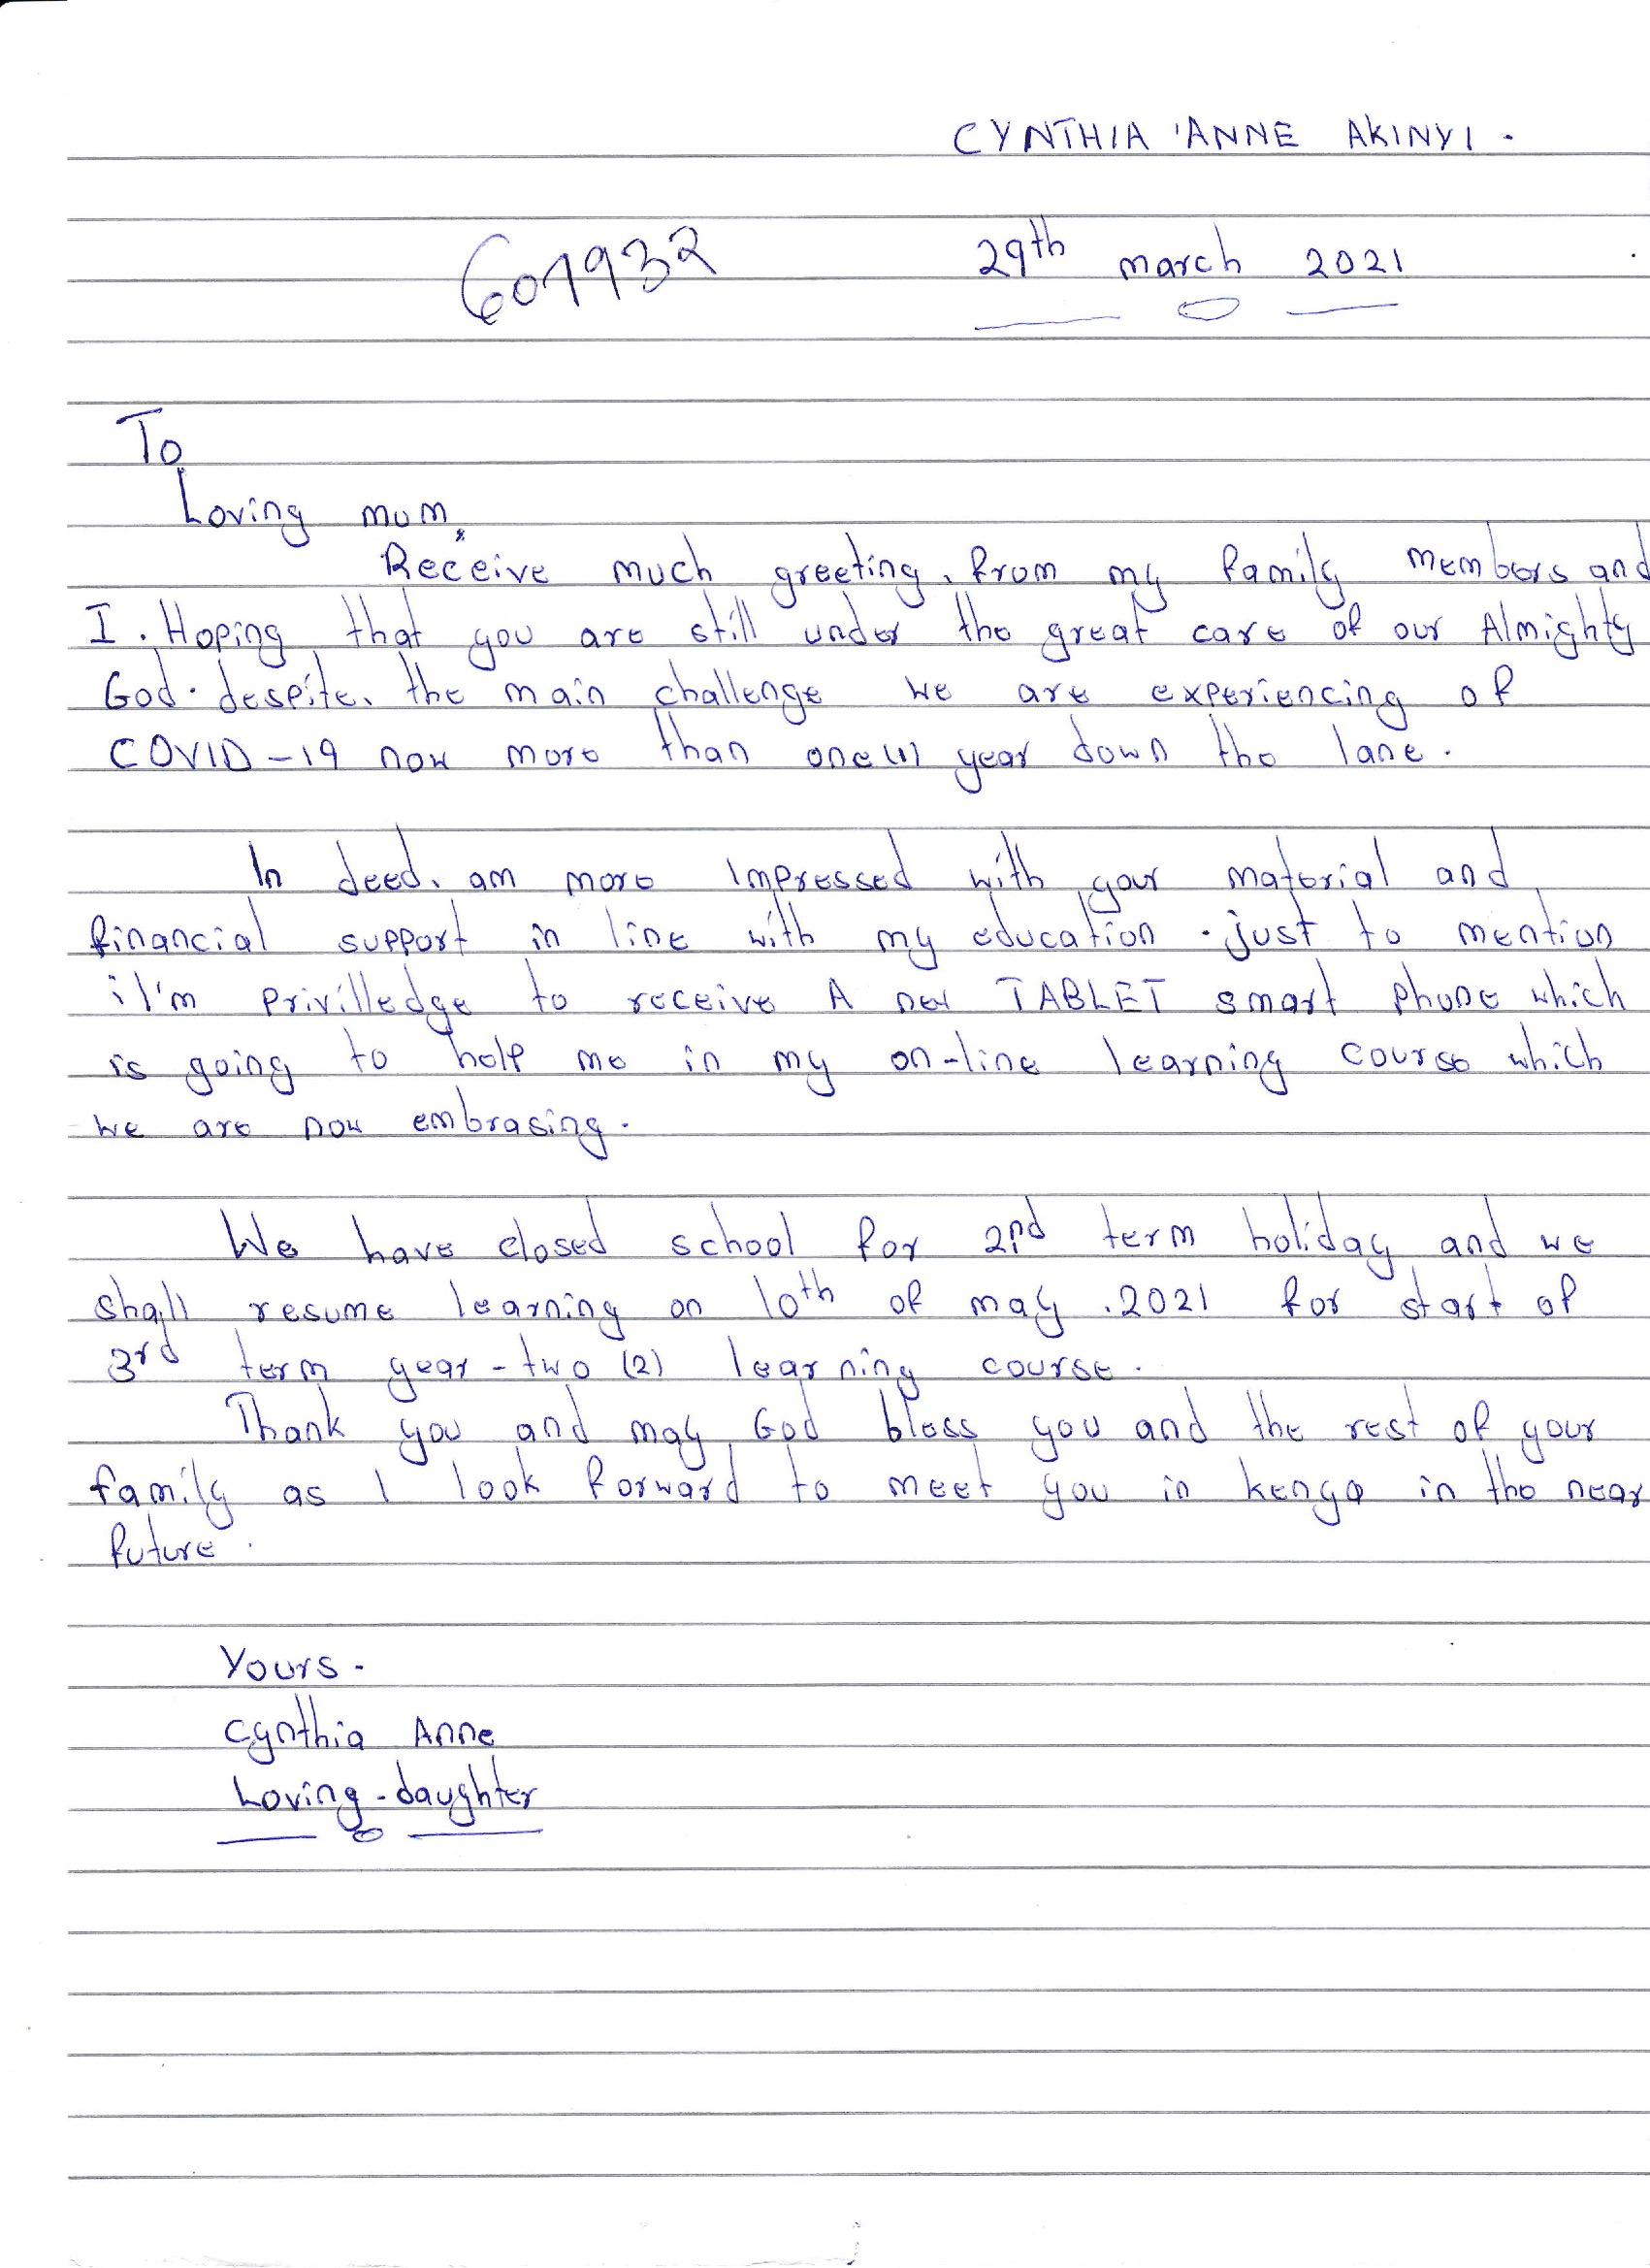 CYNTHIA 'ANNE AKINYI.
601932 29th march 2021
To
Loving mum,
Receive much greeting, from my family members and
I. Hoping that you are still under the great care of our Almighty
God. despite, the main challenge we are experiencing of
COVID-19 now more than one(1) year down the lane.
In deed, am more impressed with your material and
financial support in line with my education. just to mention
i I'm privilledge to receive A new TABLET smart phone which
is going to help me in my on-line learning course which
we are now embrasing.
We have closed school for 2nd term holiday and we
shall resume learning on 10th of may .2021 for start of
3rd term year-two (2) learning course.
Thank you and may God bless you and the rest of your
family as I look forward to meet you in kenya in the near
future.
Yours.
Cynthia Anne
Loving-daughter